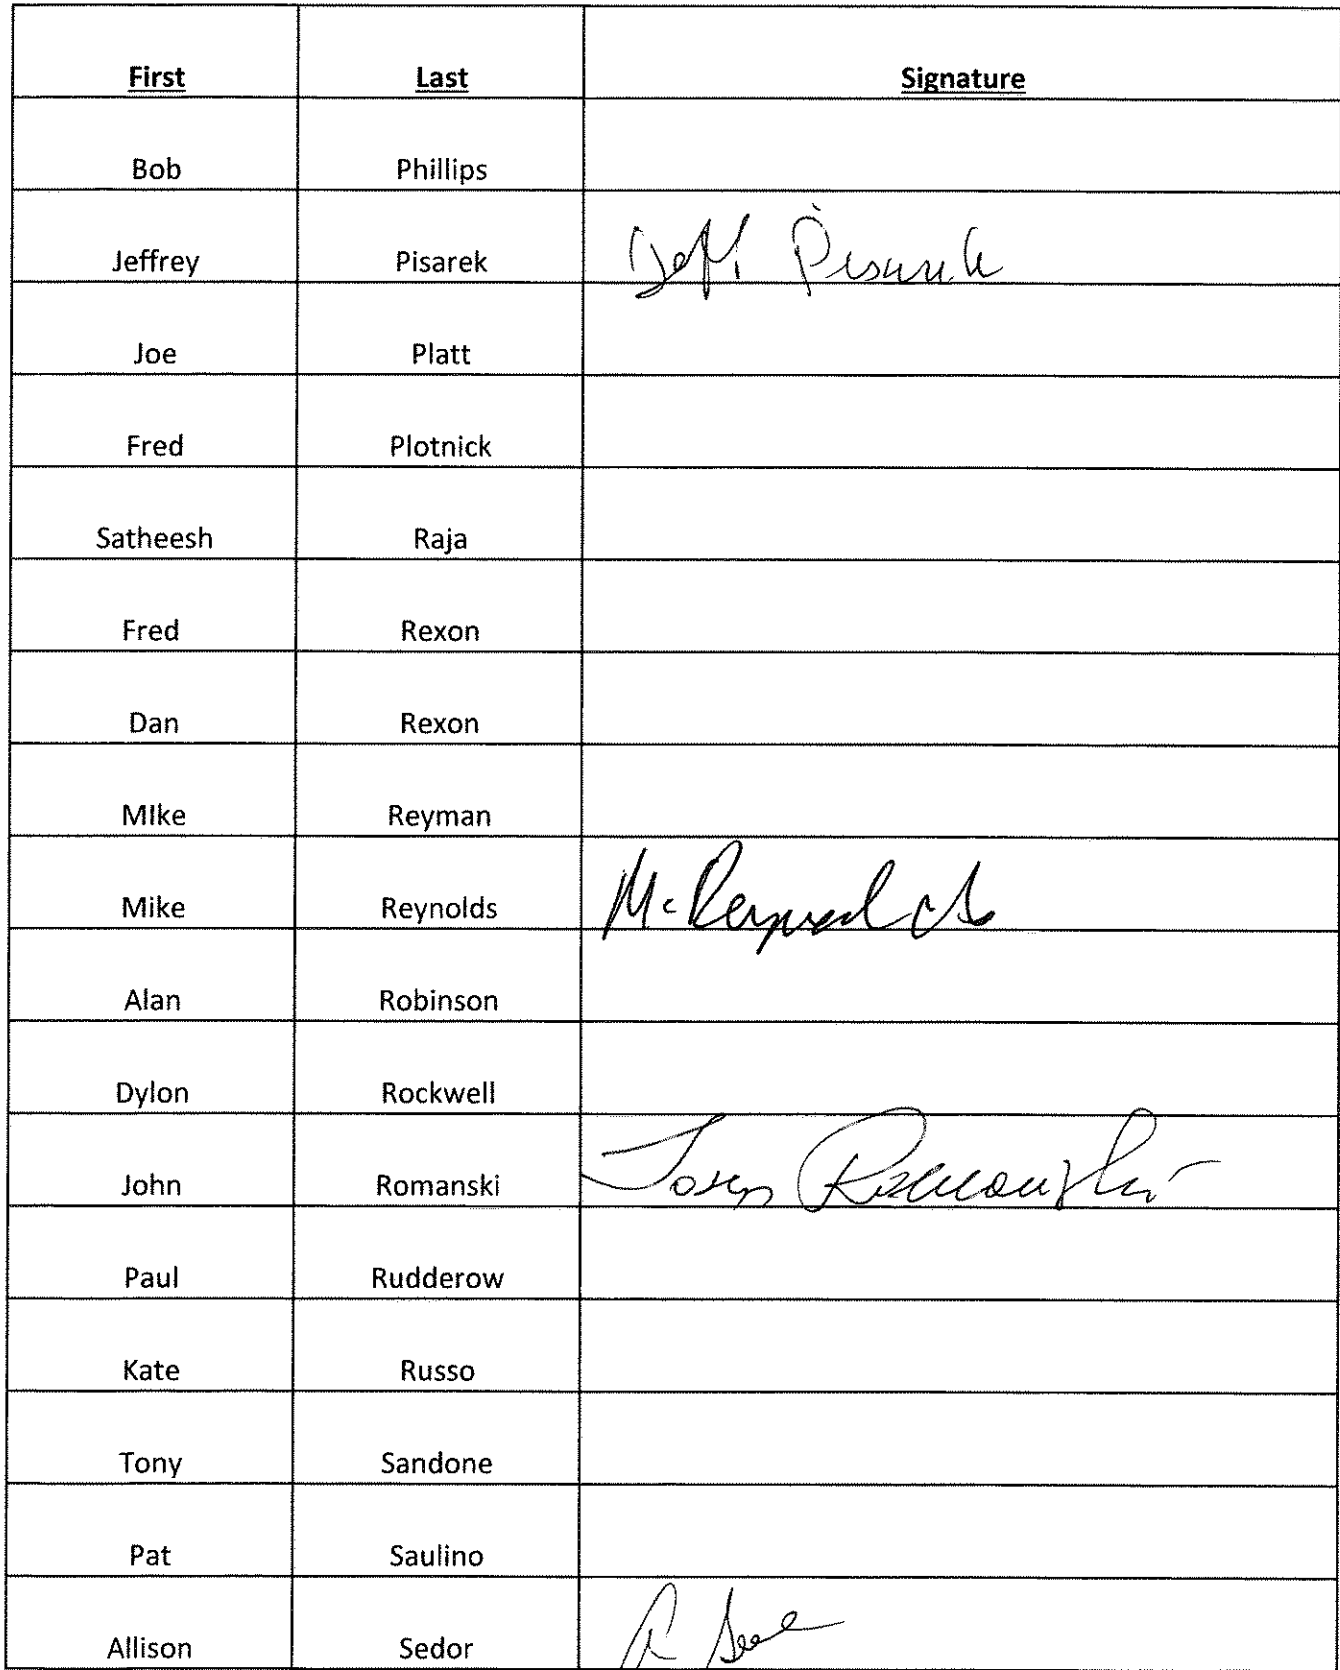 First Last Signature
Bob Phillips
Jeffrey Pisarek Jeff Pisarek
Joe Platt
Fred Plotnick
Satheesh Raja
Fred Rexon
Dan Rexon
MIke Reyman
Mike Reynolds M. Reynolds
Alan Robinson
Dylon Rockwell
John Romanski Romanski
Paul Rudderow
Kate Russo
Tony Sandone
Pat Saulino
Allison Sedor A